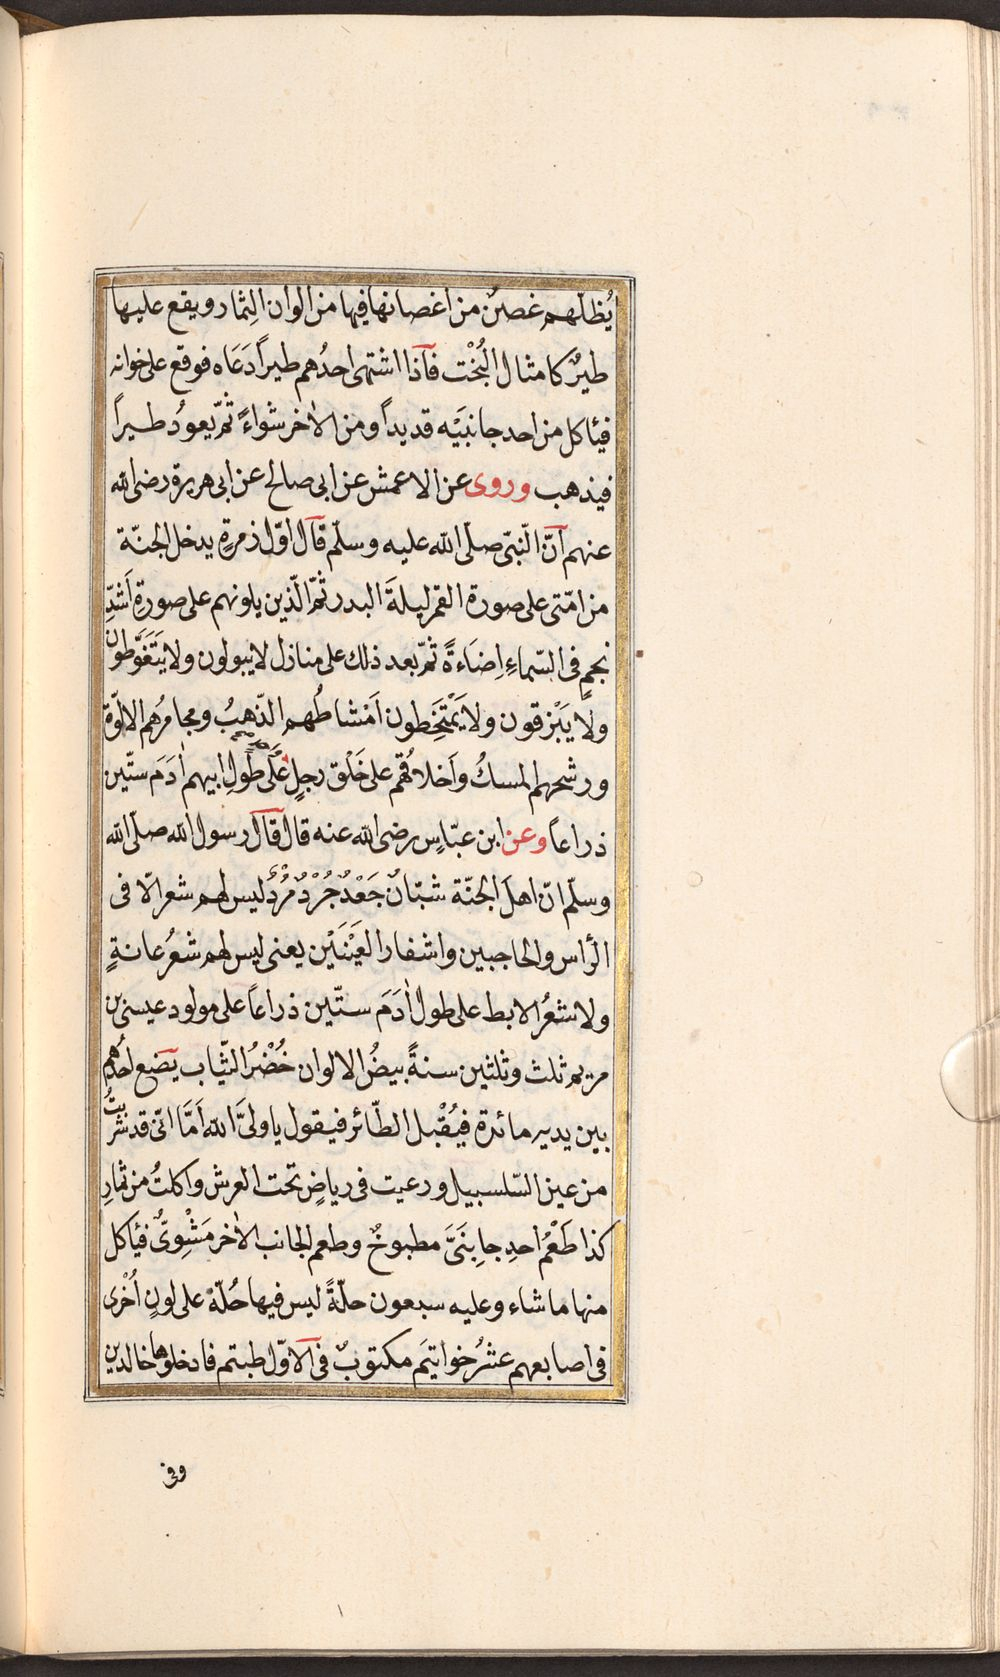 يُظلّهم غصنٌ من اغصانها فيها من الوان الثِمار ويقع عليها
طيرٌ كامثال البُخْت فاذا اشتهى احدُهم طيراً دَعَاه فوقع على خوانه
فيأكل من احد جانبَيْه قديداً ومن الاٰخر شواءً ثمّ يعودُ طيراً
فيذهب وروى عن الاعمش عن ابى صالح عن ابى هريرة رضى الله
عنهم انّ النّبىّ صلّى الله عليه وسلّم قال اوّل زمرةٍ يدخل الجنّة
من امّتى على صورة القمر ليلةَ البدر ثمّ الّذين يلونهم على صورة اَشَدِّ
نجمٍ فى السّماءِ اِضَاءةً ثمّ بعد ذلك على منازل لا يبولون ولا يَتَغَوَّطون
ولا يَبْزقون ولا يَمْتَخِطون اَمْشاطُهم الذّهبُ ومجامرُهم الالوّة
ورشحهم المسكُ واَخلاقُهم على خَلْق رجلٍ عَلَى طولِ ابيهم اٰدَمَ ستّين
ذراعاً وعن ابن عبّاس رضى الله عنه قال قال رسول الله صلّى الله
وسلّم انّ اهلَ الجنّة شبّانٌ جَعْدٌ جُرْدٌ مُرْدٌ ليس لهم شعر الّا فى
الرأس والحاجبين واشفار العَيْنَيْن يعنى ليس لهم شعرُ عانةٍ
ولا شعرُ الابط على طول اٰدَمَ ستّين ذراعاً على مولود عيسى بن
مريم ثلث وثلثين سنةً بيضُ الالوان خُضْرُ الثّياب يضع احدُهم
بين يديه مائدة فيُقْبل الطّائر فيقول يا ولىَّ الله اَمَّا انّى قد شربتُ
من عين السّلسبيل ورعيت فى رياضٍ تحت العرش واكلتُ من ثمارِ
كذا طَعْمُ احدِ جانِبَىَّ مطبوخٌ وطعم الجانب الاٰخر مَشْوِىٌّ فيأكل
منها ما شاء وعليه سبعون حلّةً ليس فيها حُلّةٌ على لونٍ اُخْرى
فى اصابعهم عشرُ خواتيمَ مكتوبٌ فى الاوّل طبتم فادخلوها خالدين
وفى